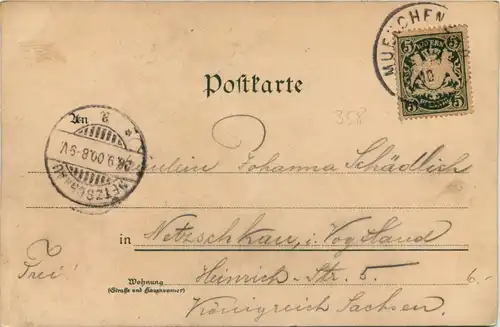 MUENCHEN
BAYERN
5 5
5 5
Postkarte
358
An
a
26.9.00.8-9V
NETZSCHKAU
Fräulein Johanna Schädlich
in Netzschkau, i. Vogtland
Frei!
Heinrich-Str. 5. 6.-
Wohnung
(Straße und Hausnummer)
Königreich Sachsen.